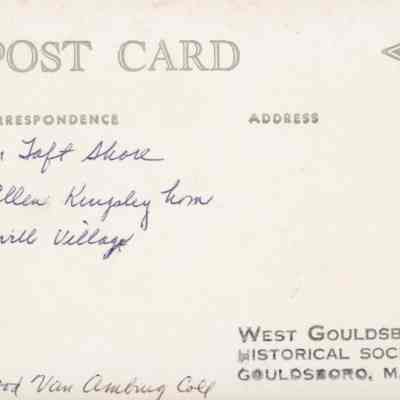 POST CARD
RRESPONDENCE ADDRESS
Taft Shore
Allen Kingsley hom
Village
WEST GOULDSB
HISTORICAL SOC
GOULDSBORO, M
ood Van Ambug Coll